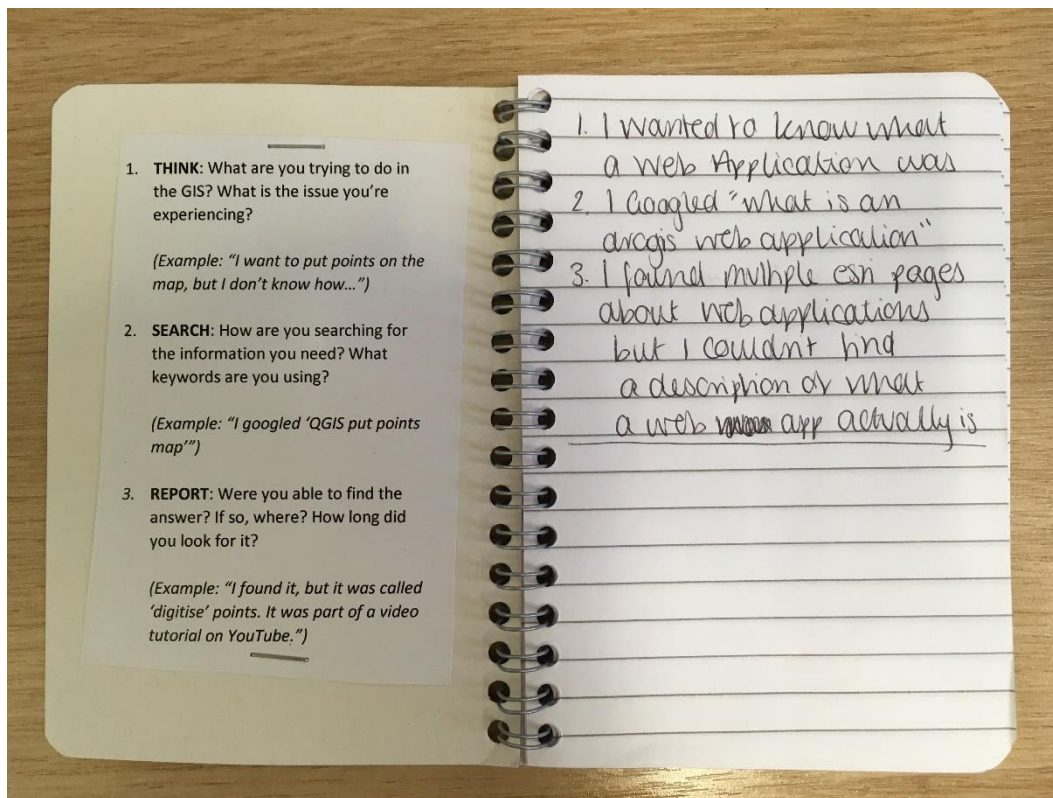 1. THINK: What are you trying to do in
the GIS? What is the issue you're
experiencing?
(Example: "I want to put points on the
map, but I don't know how...")
2. SEARCH: How are you searching for
the information you need? What
keywords are you using?
(Example: "I googled 'QGIS put points
map'")
3. REPORT: Were you able to find the
answer? If so, where? How long did
you look for it?
(Example: "I found it, but it was called
'digitise' points. It was part of a video
tutorial on YouTube.")
1. I wanted to know what
a web Application was
2. I Googled "what is an
arcgis web application"
3. I found multiple esri pages
about web applications
but I couldn't find
a description of what
a web app actually is